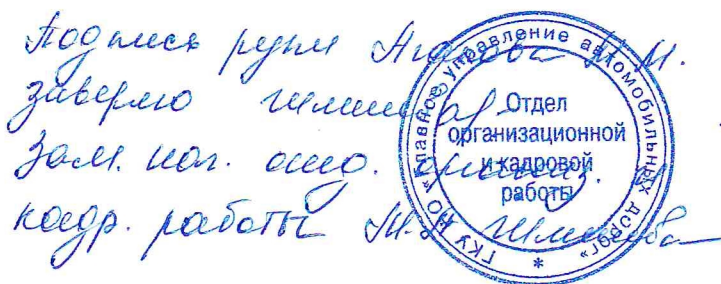 Подпись руки
заверяю
Зам. нач. отд. организ. и
кадр. работы
ГКУ НО "Главное управление автомобильных дорог" *
Отдел
организационной
и кадровой
работы